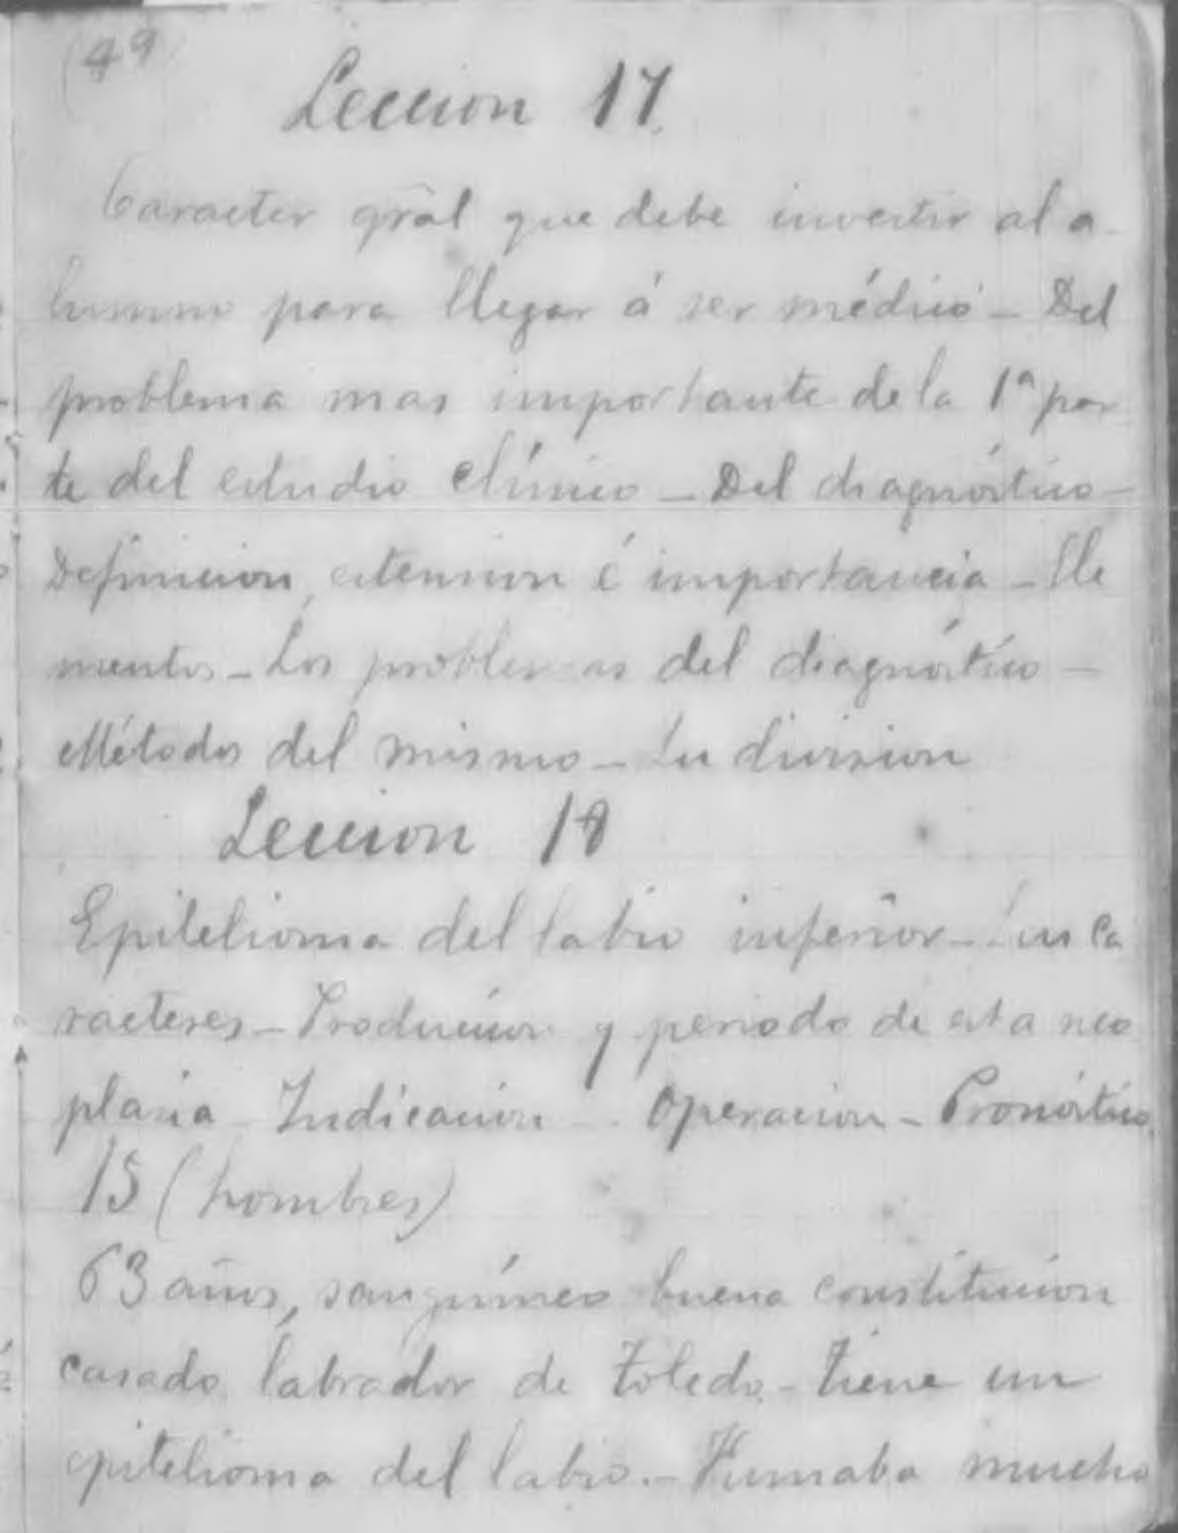 (49)
Leccion 17.
Caracter gral que debe invertir al a-
lumno para llegar á ser médico - Del
problema mas importante de la 1ª par
te del estudio clínico - Del diagnóstico -
Definicion, estension é importancia - Ele
mentos - Los problemas del diagnóstico -
Métodos del mismo - Su division
Leccion 18
Epitelioma del labio inferior - Sus ca
racteres - Produccion y periodo de esta neo
plasia - Indicacion - Operacion - Pronóstico.
15 (hombres)
63 años, sanguíneo buena constitucion
casado labrador de Toledo - tiene un
epitelioma del labio. - Fumaba mucho